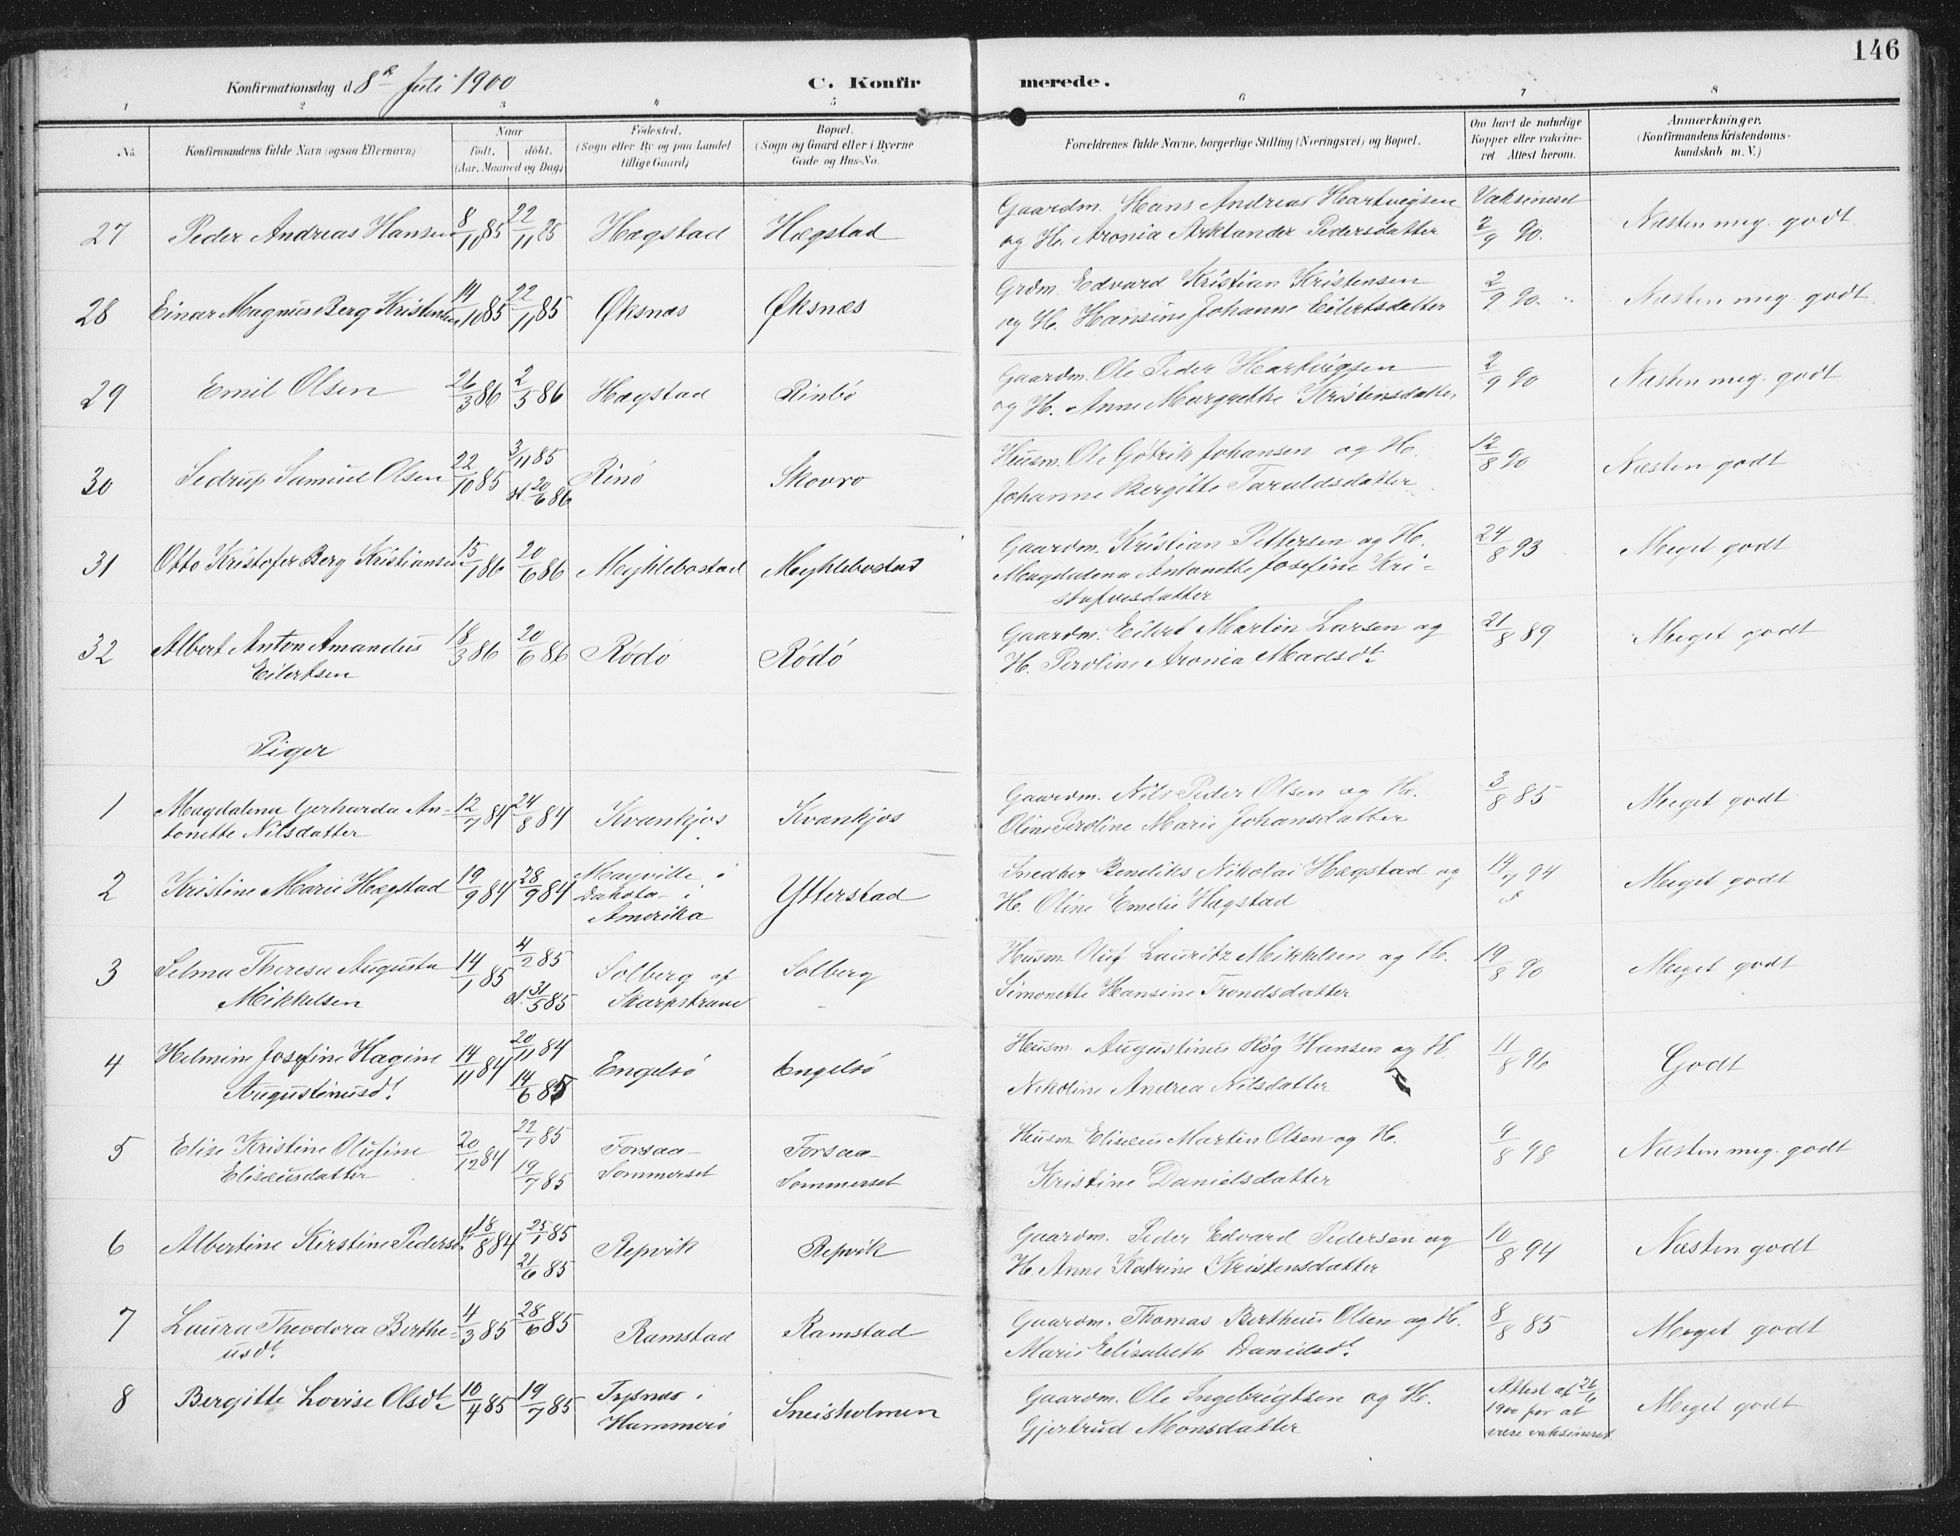 146
Konfirmationsdag d. 8de Juli 1900
C. Konfirmerede.
1 2 3 4 5 6 7 8
No. Konfirmandens fulde Navn (ogsaa Efternavn) Naar født, døbt. (Aar, Maaned og Dag) Fødested. (Sogn eller By og paa Landet tillige Gaard) Bopæl. (Sogn og Gaard eller i Byerne Gade og Hus-No. Forældrenes fulde Navne, borgerlige Stilling (Næringsvei) og Bopæl. Om havt de naturlige Kopper eller vaksineret Attest herom. Anmærkninger. (Konfirmandens Kristendomskundskab m. V.)
27 Peder Andreas Hansen 8/10 85 22/11 85 Hægstad Hægstad Gaardm. Hans Andreas Hartvigsen Vaksineret
og H. Aronia Arktander Pedersdatter 2/9 90. Næsten meg. godt
28 Einar Magnus Berg Kristensen 14/10 85 22/11 85 Øksnæs Øksnæs Grdm. Edvard Kristian Kristensen 2/9 90. Næsten meg. godt
og H. Hansine Johanne Eilertsdatter
29 Emil Olsen 26/3 86 2/5 86 Hægstad Rinbö Gaardm. Ole Peder Hartvigsen 2/9 90 Næsten meg. godt
og H. Anne Margrethe Kristensdatter
30 Sedrup Samuel Olsen 22/10 85 3/11 85 st. 20/6 86 Rinö Skovro Husm. Ole Gødrik Johansen og H. 12/8 90 Næsten godt
Johanne Bergitte Taraldsdatter
31 Otto Kristofer Berg Kristiansen 15/1 86 20/6 86 Meyklebostad Meyklebostad Gaardm. Kristian Pettersen og H. 24/8 93 Meget godt
Magdalena Antonette Josefine Kri-
stofersdatter
32 Albert Anton Amandus 18/3 86 20/6 86 Rödö Rödö Gaardm. Eilert Martin Larsen og 21/8 89 Meget godt
Eilertsen H. Peroline Aronia Madsdt.
Piger
1 Magdalena Gerharda An- 12/7 84 24/8 84 Kvankjos Kvankjos Gaardm. Nils Peder Olsen og H. 3/8 85 Meget godt
tonette Nilsdatter Oline Peroline Marie Johansdatter
2 Kristine Marie Hægstad 19/9 84 28/9 84 Mayville i Dakota i Amerika Ytterstad Snedker Bendiks Nikolai Hægstad og 14/7 94 Meget godt
H. Oline Emelie Hægstad
3 Selma Theresa Augusta 14/1 85 4/2 85 st. 31/5 85 Solberg af Skarpstrand Solberg Husm. Oluf Lauritz Mikkelsen og H. 19/8 90 Meget godt
Mikkelsen Simonette Hansine Trondsdatter
4 Helmine Josefine Hagine 14/11 84 20/11 84 14/6 85 Engelsö Engelsö Husm. Augustinus Røg Hansen og H. 11/8 96 Godt
Augustinusdt. Nikoline Andrea Nilsdatter
5 Elise Kristine Olufine 20/12 84 22/1 85 19/7 85 Forsaa- Sommerset Forsaa- Sommerset Husm. Elisæus Martin Olsen og H. 9/8 98 Næsten meg. godt
Elisæusdatter Kristine Danielsdatter
6 Albertine Kirstine Pedersdt. 18/8 84 25/1 85 21/6 85 Repvik Repvik Gaardm. Peder Edvard Pedersen og 10/8 94 Næsten godt
H. Anne Katrine Kristensdatter
7 Laura Theodora Berthe- 4/3 85 28/6 85 Ramstad Ramstad Gaardm. Thomas Bertheus Olsen og H. 8/8 85 Meget godt
usdt. Marie Elisabeth Danielsdt.
8 Bergitte Lovise Olsdt. 10/4 85 19/7 85 Tysnæs i Hammerö Sneisholmen Gaardm. Ole Ingebrigtsen og H. Attest af 26/6 1900 for at være vaksineret Meget godt
Gjertrud Monsdatter